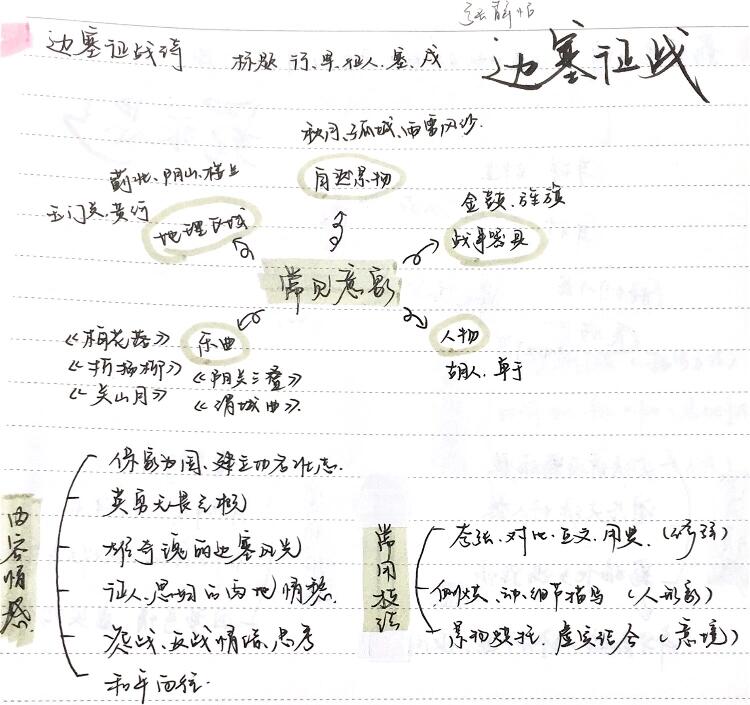 张静怡
边塞征战诗 标题 行、早、征人、塞、戍 边塞征战
秋月、孤城、雨雪风沙
蓟北、阴山、楼兰
玉门关、黄河
自然景物
地理区域
金鼓、旌旗
战争器具
常见意象
乐曲
《梅花落》
《折杨柳》
《关山月》
《阳关三叠》
《渭城曲》
人物
胡人、单于
内容情感
保家为国、建立功名壮志
英勇无畏气概
雄奇瑰丽的边塞风光
征人、思妇的两地情愁
厌战、反战情绪、思考
和平向往
常用技法
夸张、对比、互文、用典 (修辞)
侧烘、动、细节描写 (人形象)
景物烘托、虚实结合 (意境)